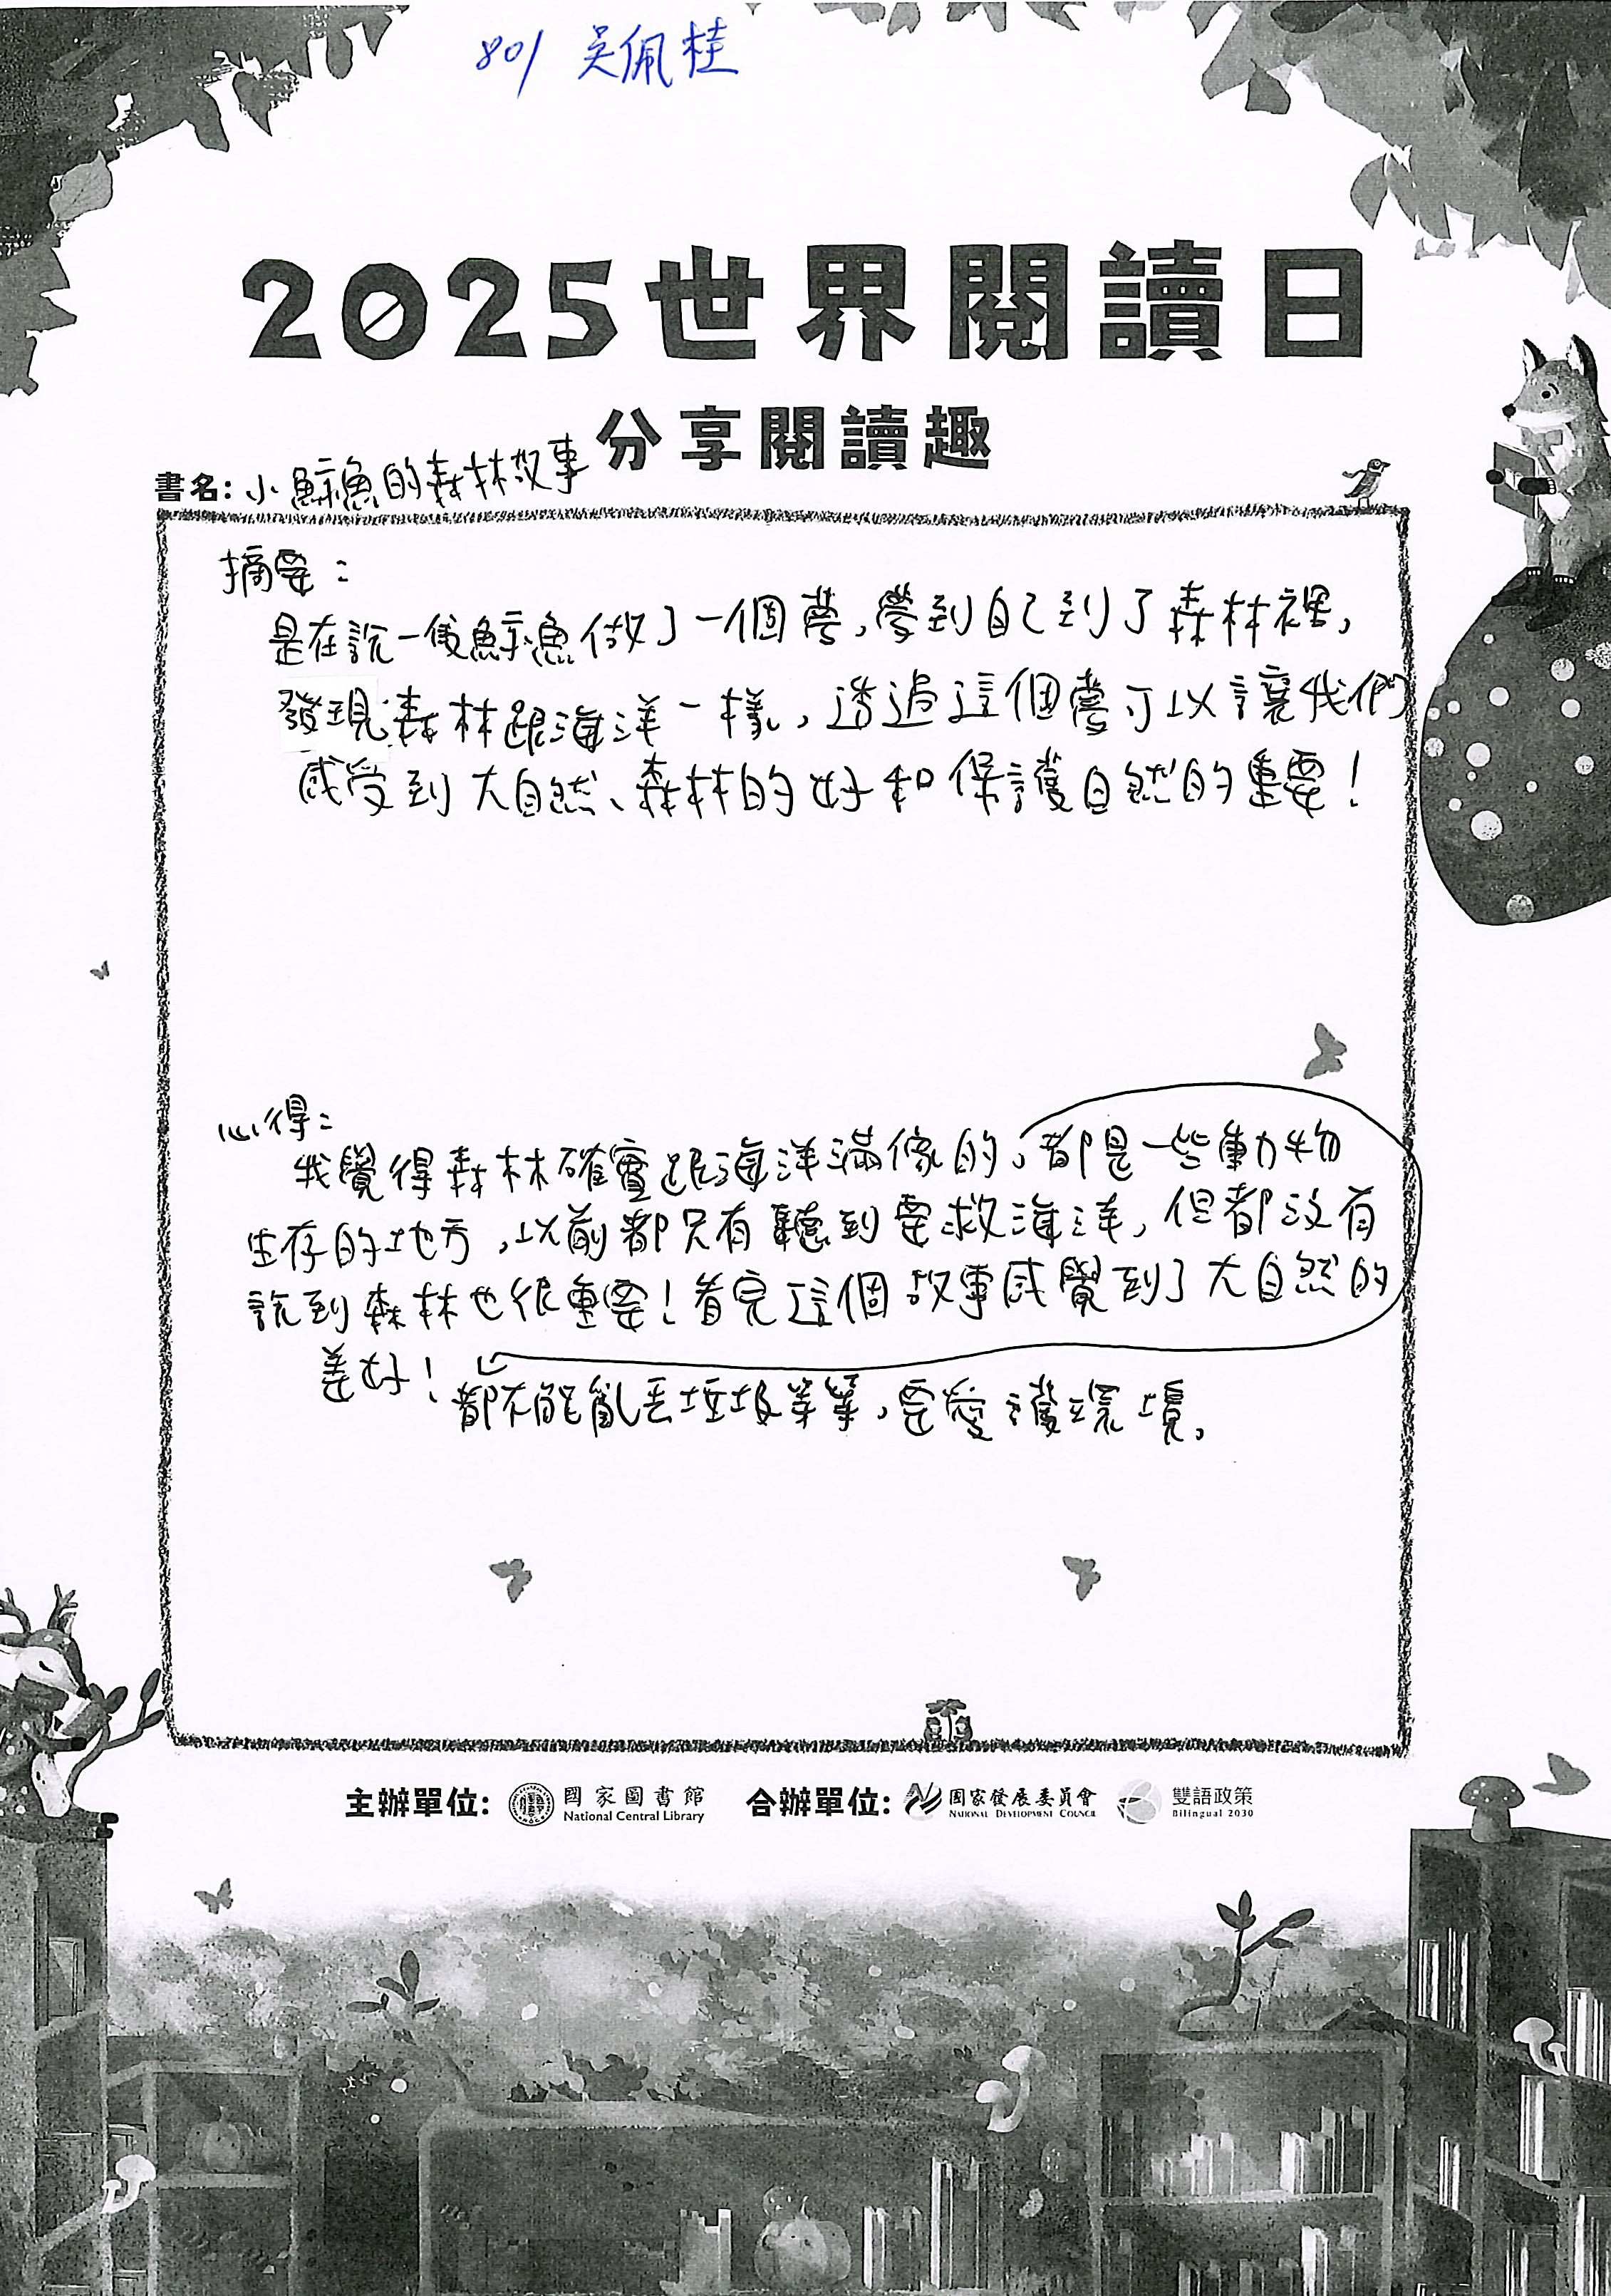 801 吳佩桂
2025世界閱讀日
分享閱讀趣
書名：小鯨魚的森林故事
摘要：
是在說一隻鯨魚做了一個夢，夢到自己到了森林裡，
發現森林跟海洋一樣，透過這個夢可以讓我們
感受到大自然、森林的好和保護自然的重要！
心得：
我覺得森林確實跟海洋滿像的，都是一些動物
生存的地方，以前都只有聽到要救海洋，但都沒有
說到森林也很重要！看完這個故事感覺到了大自然的
美好！都不能亂丟垃圾等等，要愛護環境。
主辦單位： 國家圖書館 合辦單位： 國家發展委員會 雙語政策
National Central Library NATIONAL DEVELOPMENT COUNCIL Bilingual 2030